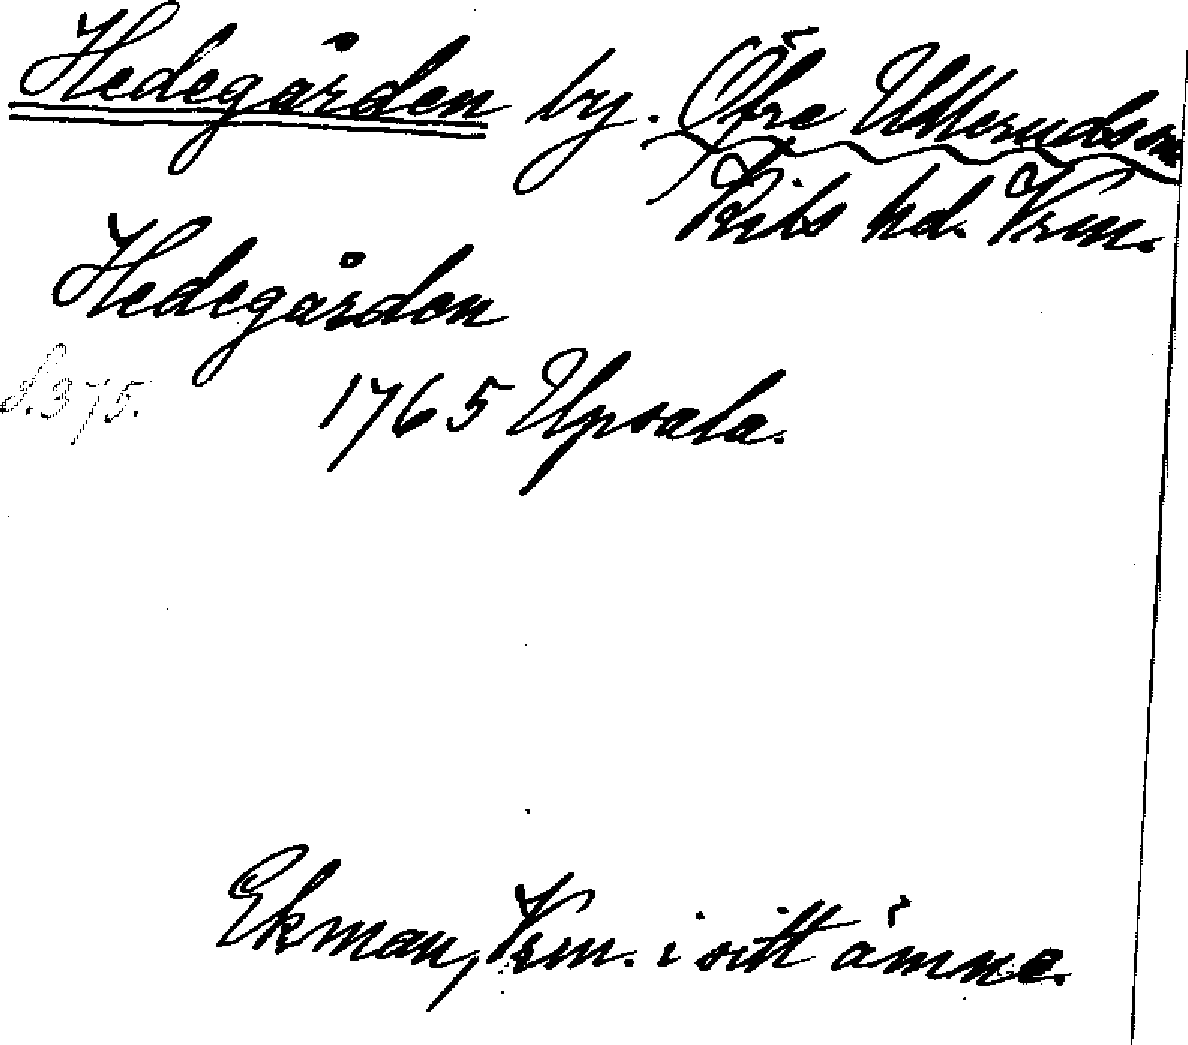 Hedegården by. Öfre Ulleruds sn
Kils hd. Vrm.
Hedegården
S. 375. 1765 Upsala.
Ekman, Vrm. i sitt ämne.